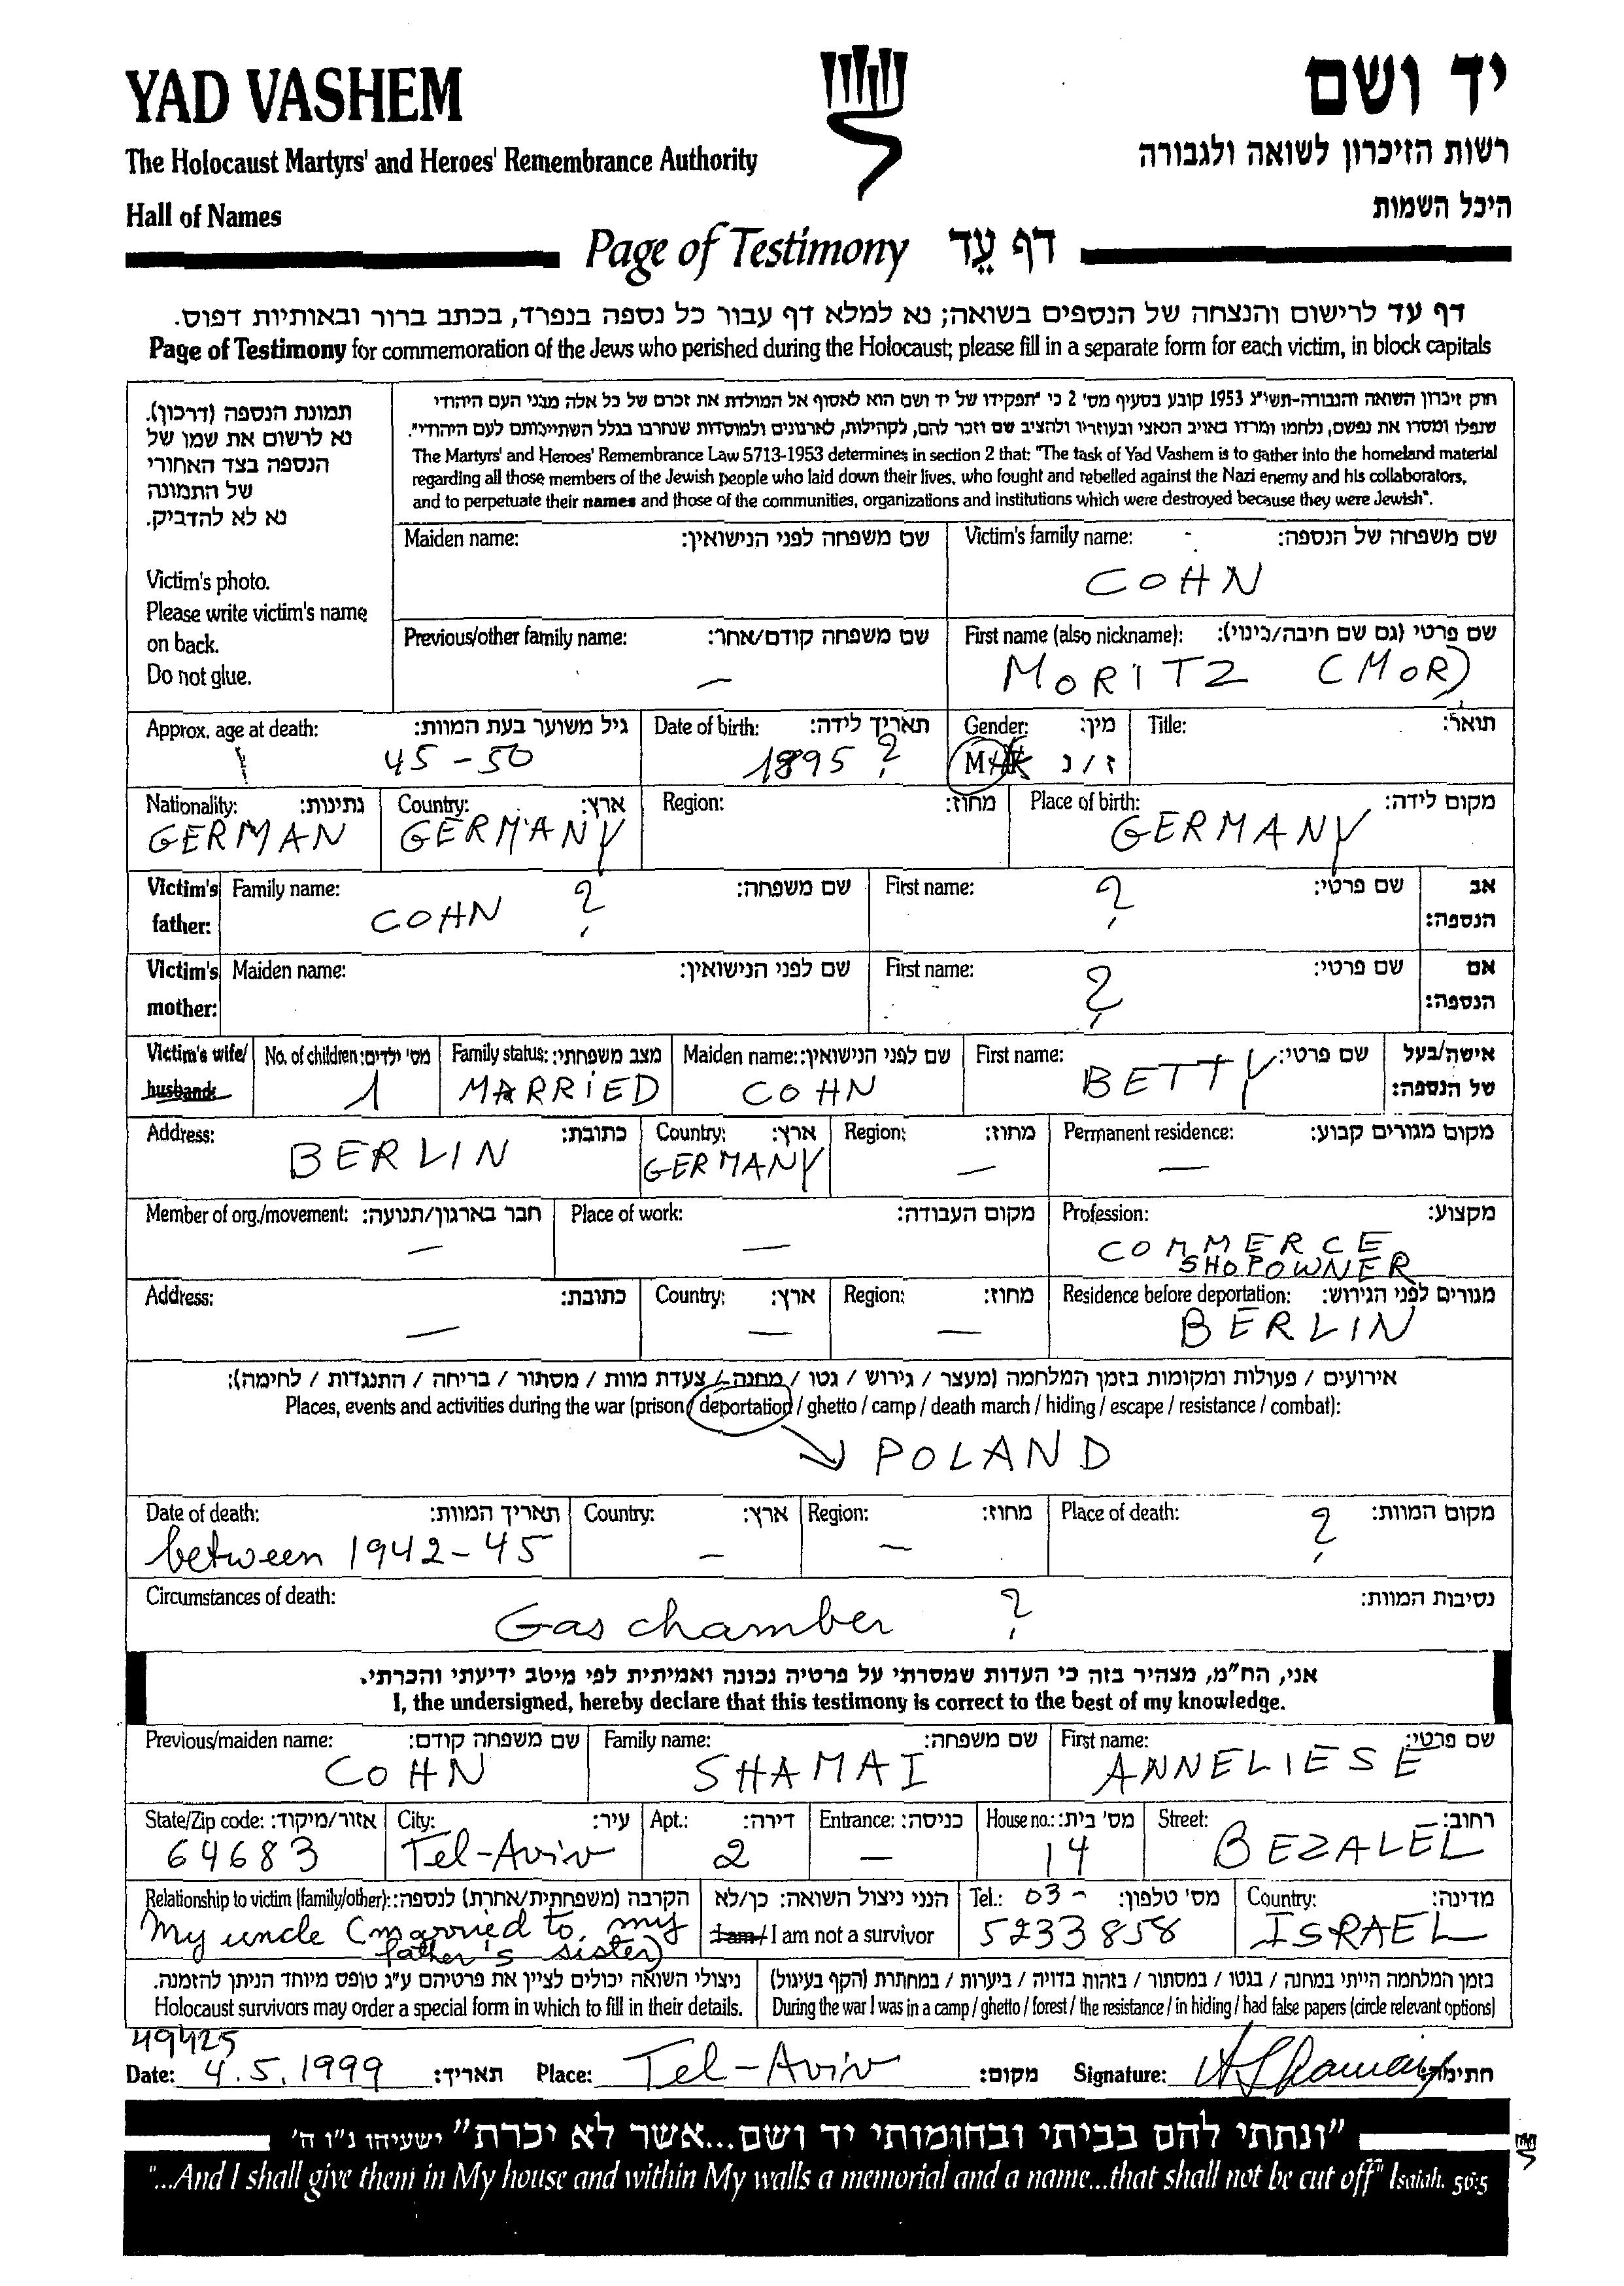 YAD VASHEM
יד ושם
The Holocaust Martyrs' and Heroes' Remembrance Authority
רשות הזיכרון לשואה ולגבורה
Hall of Names
היכל השמות
Page of Testimony דף עֵד
דף עד לרישום והנצחה של הנספים בשואה; נא למלא דף עבור כל נספה בנפרד, בכתב ברור ובאותיות דפוס.
Page of Testimony for commemoration of the Jews who perished during the Holocaust; please fill in a separate form for each victim, in block capitals
תמונת הנספה (דרכון).
נא לרשום את שמו של
הנספה בצד האחורי
של התמונה
נא לא להדביק.
Victim's photo.
Please write victim's name
on back.
Do not glue.
חוק זיכרון השואה והגבורה-תשי"ג 1953 קובע בסעיף מס' 2 כי "תפקידו של יד ושם הוא לאסוף אל המולדת את זכרם של כל אלה מבני העם היהודי
שנפלו ומסרו את נפשם, נלחמו ומרדו באויב הנאצי ובעוזריו ולהציב שם וזכר להם, לקהילות, לארגונים ולמוסדות שנחרבו בגלל השתייכותם לעם היהודי".
The Martyrs' and Heroes' Remembrance Law 5713-1953 determines in section 2 that: "The task of Yad Vashem is to gather into the homeland material
regarding all those members of the Jewish people who laid down their lives, who fought and rebelled against the Nazi enemy and his collaborators,
and to perpetuate their names and those of the communities, organizations and institutions which were destroyed because they were Jewish".
Maiden name: שם משפחה לפני הנישואין: Victim's family name: שם משפחה של הנספה:
COHN
Previous/other family name: שם משפחה קודם/אחר: First name (also nickname): שם פרטי (גם שם חיבה/כינוי):
— MORITZ (MOR)
Approx. age at death: גיל משוער בעת המוות: Date of birth: תאריך לידה: Gender: מין: Title: תואר:
45-50 1895 ? M/F ז / נ
Nationality: נתינות: Country: ארץ: Region: מחוז: Place of birth: מקום לידה:
GERMAN GERMANY GERMANY
Victim's father: Family name: שם משפחה: First name: שם פרטי: אב הנספה:
COHN ? ?
Victim's mother: Maiden name: שם לפני הנישואין: First name: שם פרטי: אם הנספה:
?
Victim's wife/ husband: No. of children: מס' ילדים: Family status: מצב משפחתי: Maiden name: שם לפני הנישואין: First name: שם פרטי: אישה/בעל של הנספה:
1 MARRIED COHN BETTY
Address: כתובת: Country: ארץ: Region: מחוז: Permanent residence: מקום מגורים קבוע:
BERLIN GERMANY — —
Member of org./movement: חבר בארגון/תנועה: Place of work: מקום העבודה: Profession: מקצוע:
— — COMMERCE
SHOPOWNER
Address: כתובת: Country: ארץ: Region: מחוז: Residence before deportation: מגורים לפני הגירוש:
— — — BERLIN
אירועים / פעולות ומקומות בזמן המלחמה (מעצר / גירוש / גטו / מחנה / צעדת מוות / מסתור / בריחה / התנגדות / לחימה):
Places, events and activities during the war (prison / deportation / ghetto / camp / death march / hiding / escape / resistance / combat):
POLAND
Date of death: תאריך המוות: Country: ארץ: Region: מחוז: Place of death: מקום המוות:
between 1942-45 — — ?
Circumstances of death: נסיבות המוות:
Gas chamber ?
אני, הח"מ, מצהיר בזה כי העדות שמסרתי על פרטיה נכונה ואמיתית לפי מיטב ידיעתי והכרתי.
I, the undersigned, hereby declare that this testimony is correct to the best of my knowledge.
Previous/maiden name: שם משפחה קודם: Family name: שם משפחה: First name: שם פרטי:
COHN SHAMAI ANNELIESE
State/Zip code: אזור/מיקוד: City: עיר: Apt.: דירה: Entrance: כניסה: House no.: מס' בית: Street: רחוב:
64683 Tel-Aviv 2 — 14 BEZALEL
Relationship to victim (family/other): הקרבה (משפחתית/אחרת) לנספה: הנני ניצול השואה: כן/לא Tel.: 03- מס' טלפון: Country: מדינה:
My uncle (married to my I am / I am not a survivor 5233858 ISRAEL
father's sister)
ניצולי השואה יכולים לציין את פרטיהם ע"ג טופס מיוחד הניתן להזמנה. בזמן המלחמה הייתי במחנה / בגטו / במסתור / בזהות בדויה / ביערות / במחתרת (הקף בעיגול)
Holocaust survivors may order a special form in which to fill in their details. During the war I was in a camp / ghetto / forest / the resistance / in hiding / had false papers (circle relevant options)
49425
Date: 4.5.1999 תאריך: Place: Tel-Aviv מקום: Signature: A Shamai חתימה:
"ונתתי להם בביתי ובחומותי יד ושם...אשר לא יכרת" ישעיהו נ"ו ה'
"...And I shall give them in My house and within My walls a memorial and a name...that shall not be cut off" Isaiah. 56:5